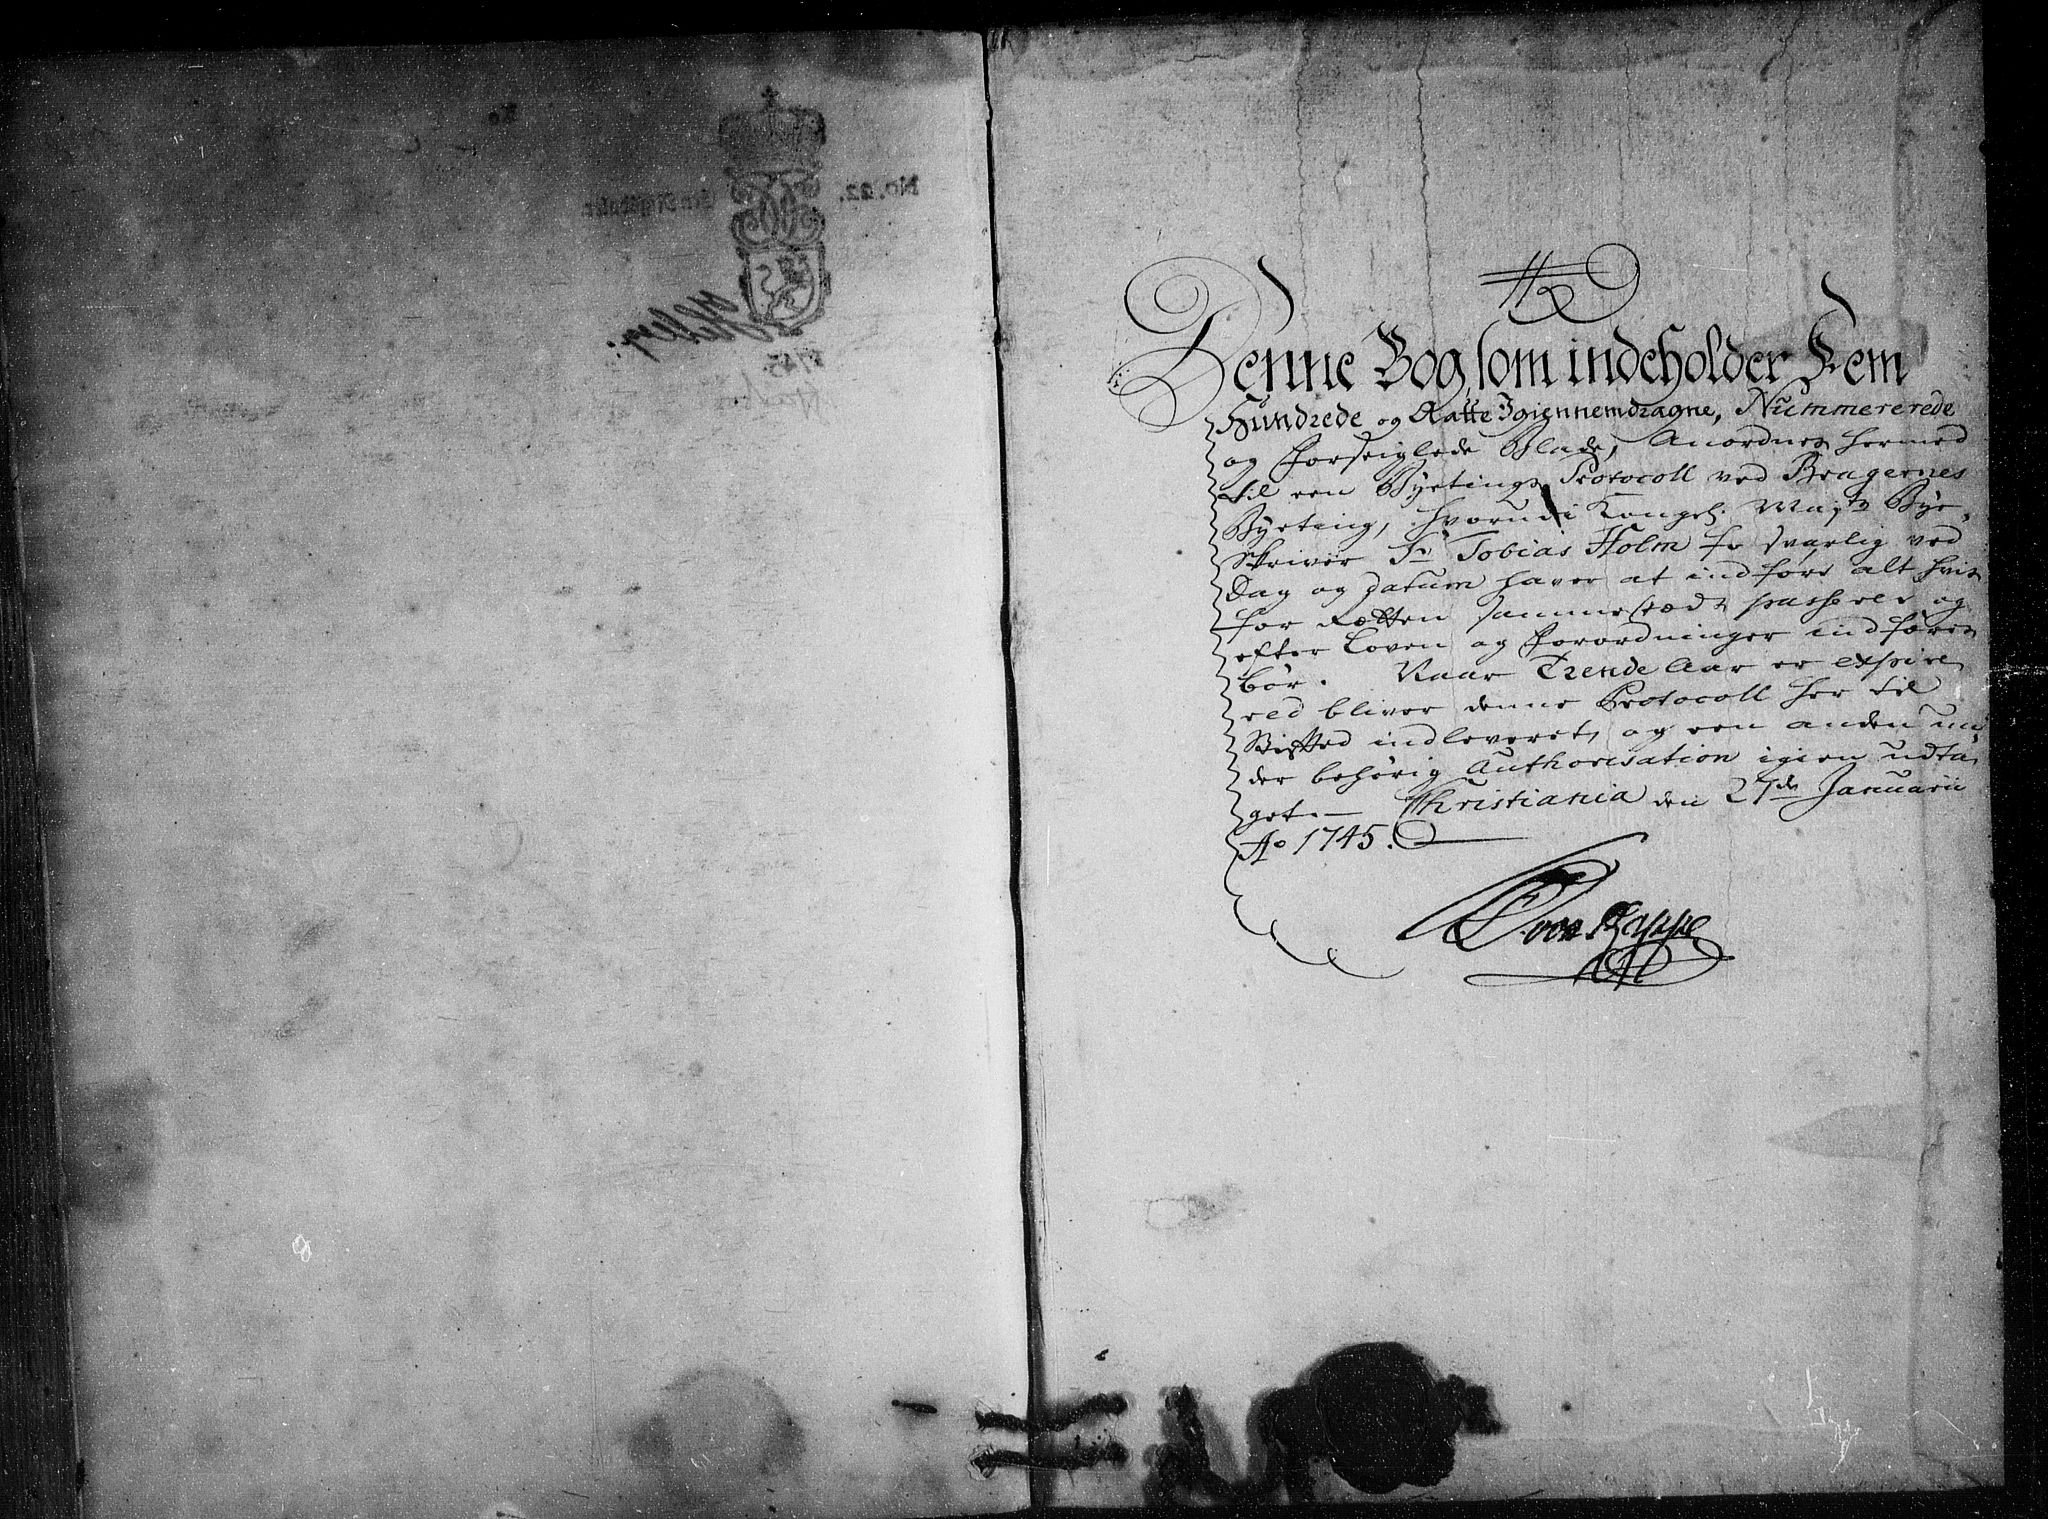 Denne Bog, som indeholder Fem
Hundrede og Aatte Igiennemdragne, Nummererede
og Forseiglede Blade, Anordnes hermed
til een Byetings Protocoll ved Bragernes
Byeting, hvorudi Kongel. Maj:ts Bye-
Skriver Sr. Tobias Holm forsvarlig ved
Dag og Datum haver at indføre alt hvis
for Rætten sammestæds passerer og
efter Loven og Forordninger indføres
bør. Naar Trende Aar er expire
red bliver denne Protocoll her til
Stifted indleveret, og een anden un
der behørig Authorisation igien udta
get. Christiania den 27de Januarii
Ao 1745.
von Rappe
No. 22.
1745